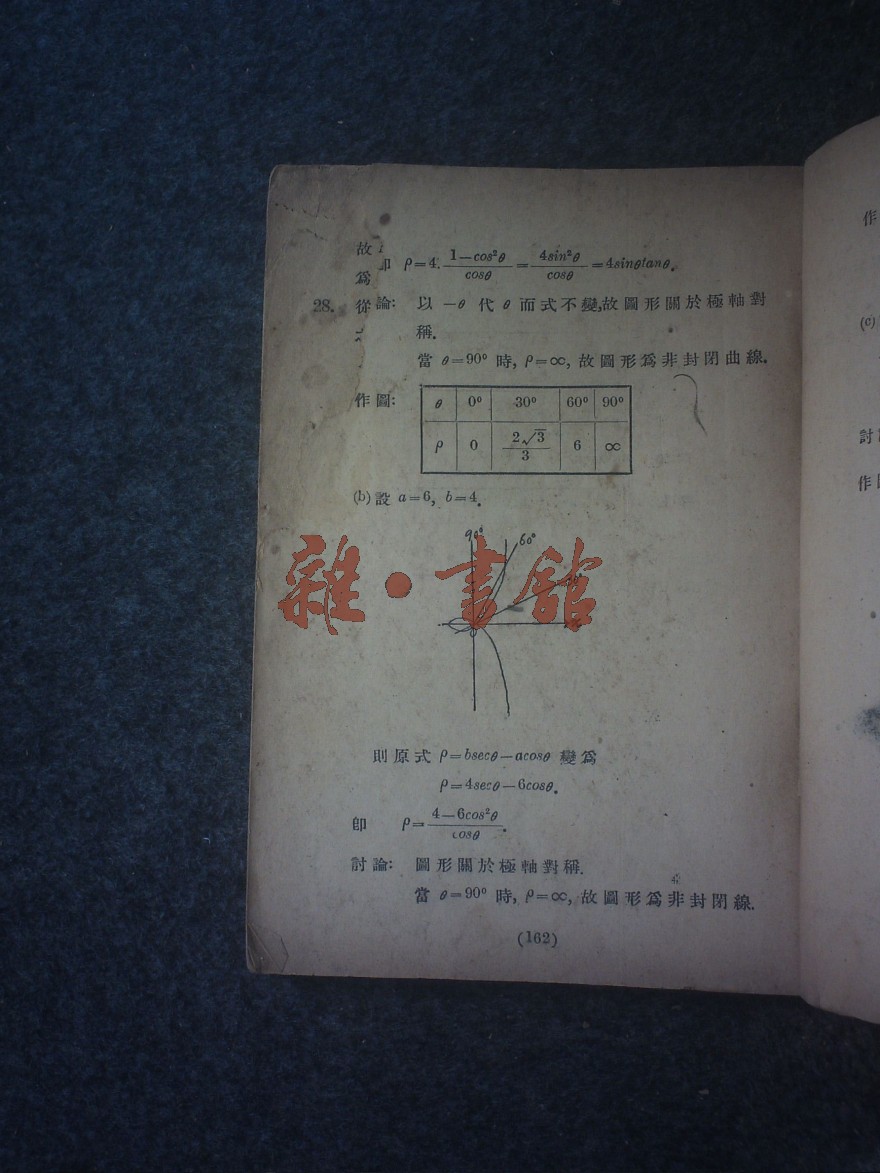 故
即 ρ=4.(1-cos²θ)/cosθ=4sin²θ/cosθ=4sinθtanθ.
爲
28. 從論: 以 -θ 代 θ 而式不變,故圖形關於極軸對
稱.
當 θ=90° 時, ρ=∞, 故圖形爲非封閉曲線.
作圖:
θ 0° 30° 60° 90°
ρ 0 2√3/3 6 ∞
(b) 設 a=6, b=4.
90° 60°
雜·書館
則原式 ρ=bsecθ-acosθ 變爲
ρ=4secθ-6cosθ.
即 ρ=(4-6cos²θ)/cosθ.
討論: 圖形關於極軸對稱.
當 θ=90° 時, ρ=∞, 故圖形爲非封閉線.
(162)
作
(c)
討
作